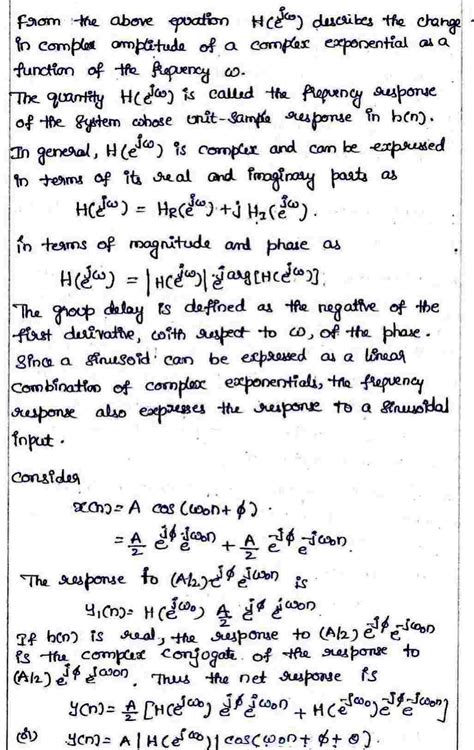 From the above equation H(e^jω) describes the change
in complex amplitude of a complex exponential as a
function of the frequency ω.
The quantity H(e^jω) is called the frequency response
of the system whose unit-sample response in h(n).
In general, H(e^jω) is complex and can be expressed
in terms of its real and imaginary parts as
H(e^jω) = H_R(e^jω) + j H_I(e^jω).
in terms of magnitude and phase as
H(e^jω) = |H(e^jω)| e^j arg[H(e^jω)].
The group delay is defined as the negative of the
first derivative, with respect to ω, of the phase.
Since a sinusoid can be expressed as a linear
combination of complex exponentials, the frequency
response also expresses the response to a sinusoidal
input.
Consider
x(n) = A cos(ω₀n + φ).
= A/2 e^jφ e^jω₀n + A/2 e^-jφ e^-jω₀n.
The response to (A/2) e^jφ e^jω₀n is
y₁(n) = H(e^jω₀) A/2 e^jφ e^jω₀n.
If h(n) is real, the response to (A/2) e^-jφ e^-jω₀n
is the complex conjugate of the response to
(A/2) e^jφ e^jω₀n. Thus the net response is
y(n) = A/2 [H(e^jω₀) e^jφ e^jω₀n + H(e^-jω₀) e^-jφ e^-jω₀n]
(or) y(n) = A |H(e^jω₀)| cos(ω₀n + φ + θ).